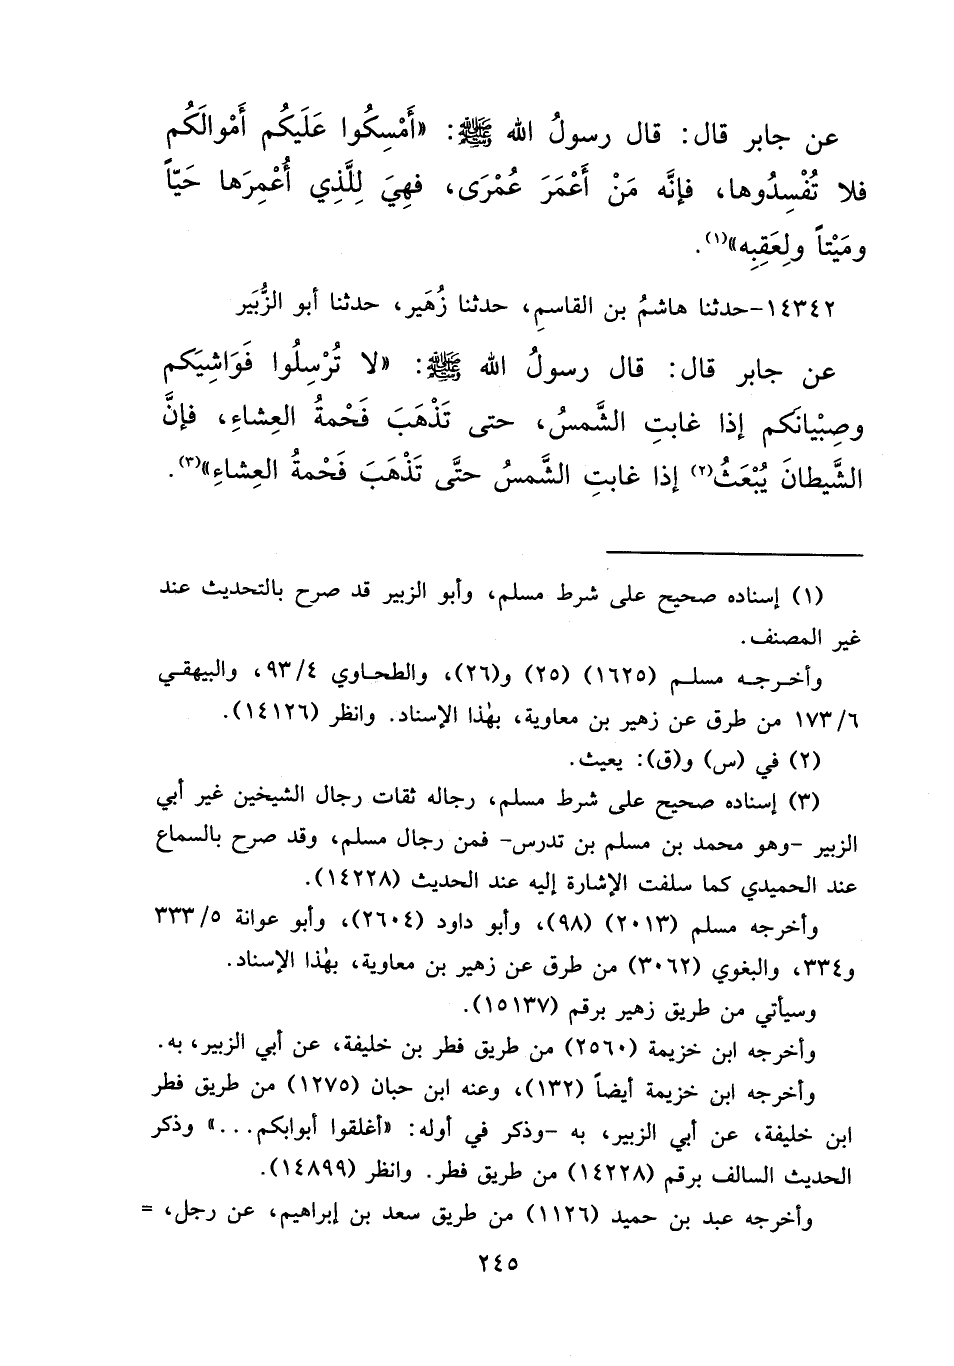 عن جابر قال: قال رسولُ الله ﷺ: «أَمْسِكُوا عَلَيكُم أَمْوالَكُم
فلا تُفْسِدُوها، فإنَّه مَنْ أَعْمَرَ عُمْرَى، فهِيَ لِلَّذِي أُعْمِرَها حَيّاً
ومَيْتاً ولِعَقِبِه»(١).
١٤٣٤٢-حدثنا هاشمُ بن القاسمِ، حدثنا زُهَير، حدثنا أبو الزُّبَير
عن جابر قال: قال رسولُ الله ﷺ: «لا تُرْسِلُوا فَوَاشِيَكم
وصِبْيانَكم إذا غابتِ الشَّمسُ، حتى تَذْهَبَ فَحْمةُ العِشاءِ، فإنَّ
الشَّيطانَ يُبْعَثُ(٢) إذا غابتِ الشَّمسُ حتَّى تَذْهَبَ فَحْمةُ العِشاءِ»(٣).
(١) إسناده صحيح على شرط مسلم، وأبو الزبير قد صرح بالتحديث عند
غير المصنف.
وأخرجه مسلم (١٦٢٥) (٢٥) و(٢٦)، والطحاوي ٩٣/٤، والبيهقي
١٧٣/٦ من طرق عن زهير بن معاوية، بهٰذا الإسناد. وانظر (١٤١٢٦).
(٢) في (س) و(ق): يعيث.
(٣) إسناده صحيح على شرط مسلم، رجاله ثقات رجال الشيخين غير أبي
الزبير -وهو محمد بن مسلم بن تدرس- فمن رجال مسلم، وقد صرح بالسماع
عند الحميدي كما سلفت الإشارة إليه عند الحديث (١٤٢٢٨).
وأخرجه مسلم (٢٠١٣) (٩٨)، وأبو داود (٢٦٠٤)، وأبو عوانة ٣٣٣/٥
و٣٣٤، والبغوي (٣٠٦٢) من طرق عن زهير بن معاوية، بهٰذا الإسناد.
وسيأتي من طريق زهير برقم (١٥١٣٧).
وأخرجه ابن خزيمة (٢٥٦٠) من طريق فطر بن خليفة، عن أبي الزبير، به.
وأخرجه ابن خزيمة أيضاً (١٣٢)، وعنه ابن حبان (١٢٧٥) من طريق فطر
ابن خليفة، عن أبي الزبير، به -وذكر في أوله: «أغلقوا أبوابكم...» وذكر
الحديث السالف برقم (١٤٢٢٨) من طريق فطر. وانظر (١٤٨٩٩).
وأخرجه عبد بن حميد (١١٢٦) من طريق سعد بن إبراهيم، عن رجل، =
٢٤٥